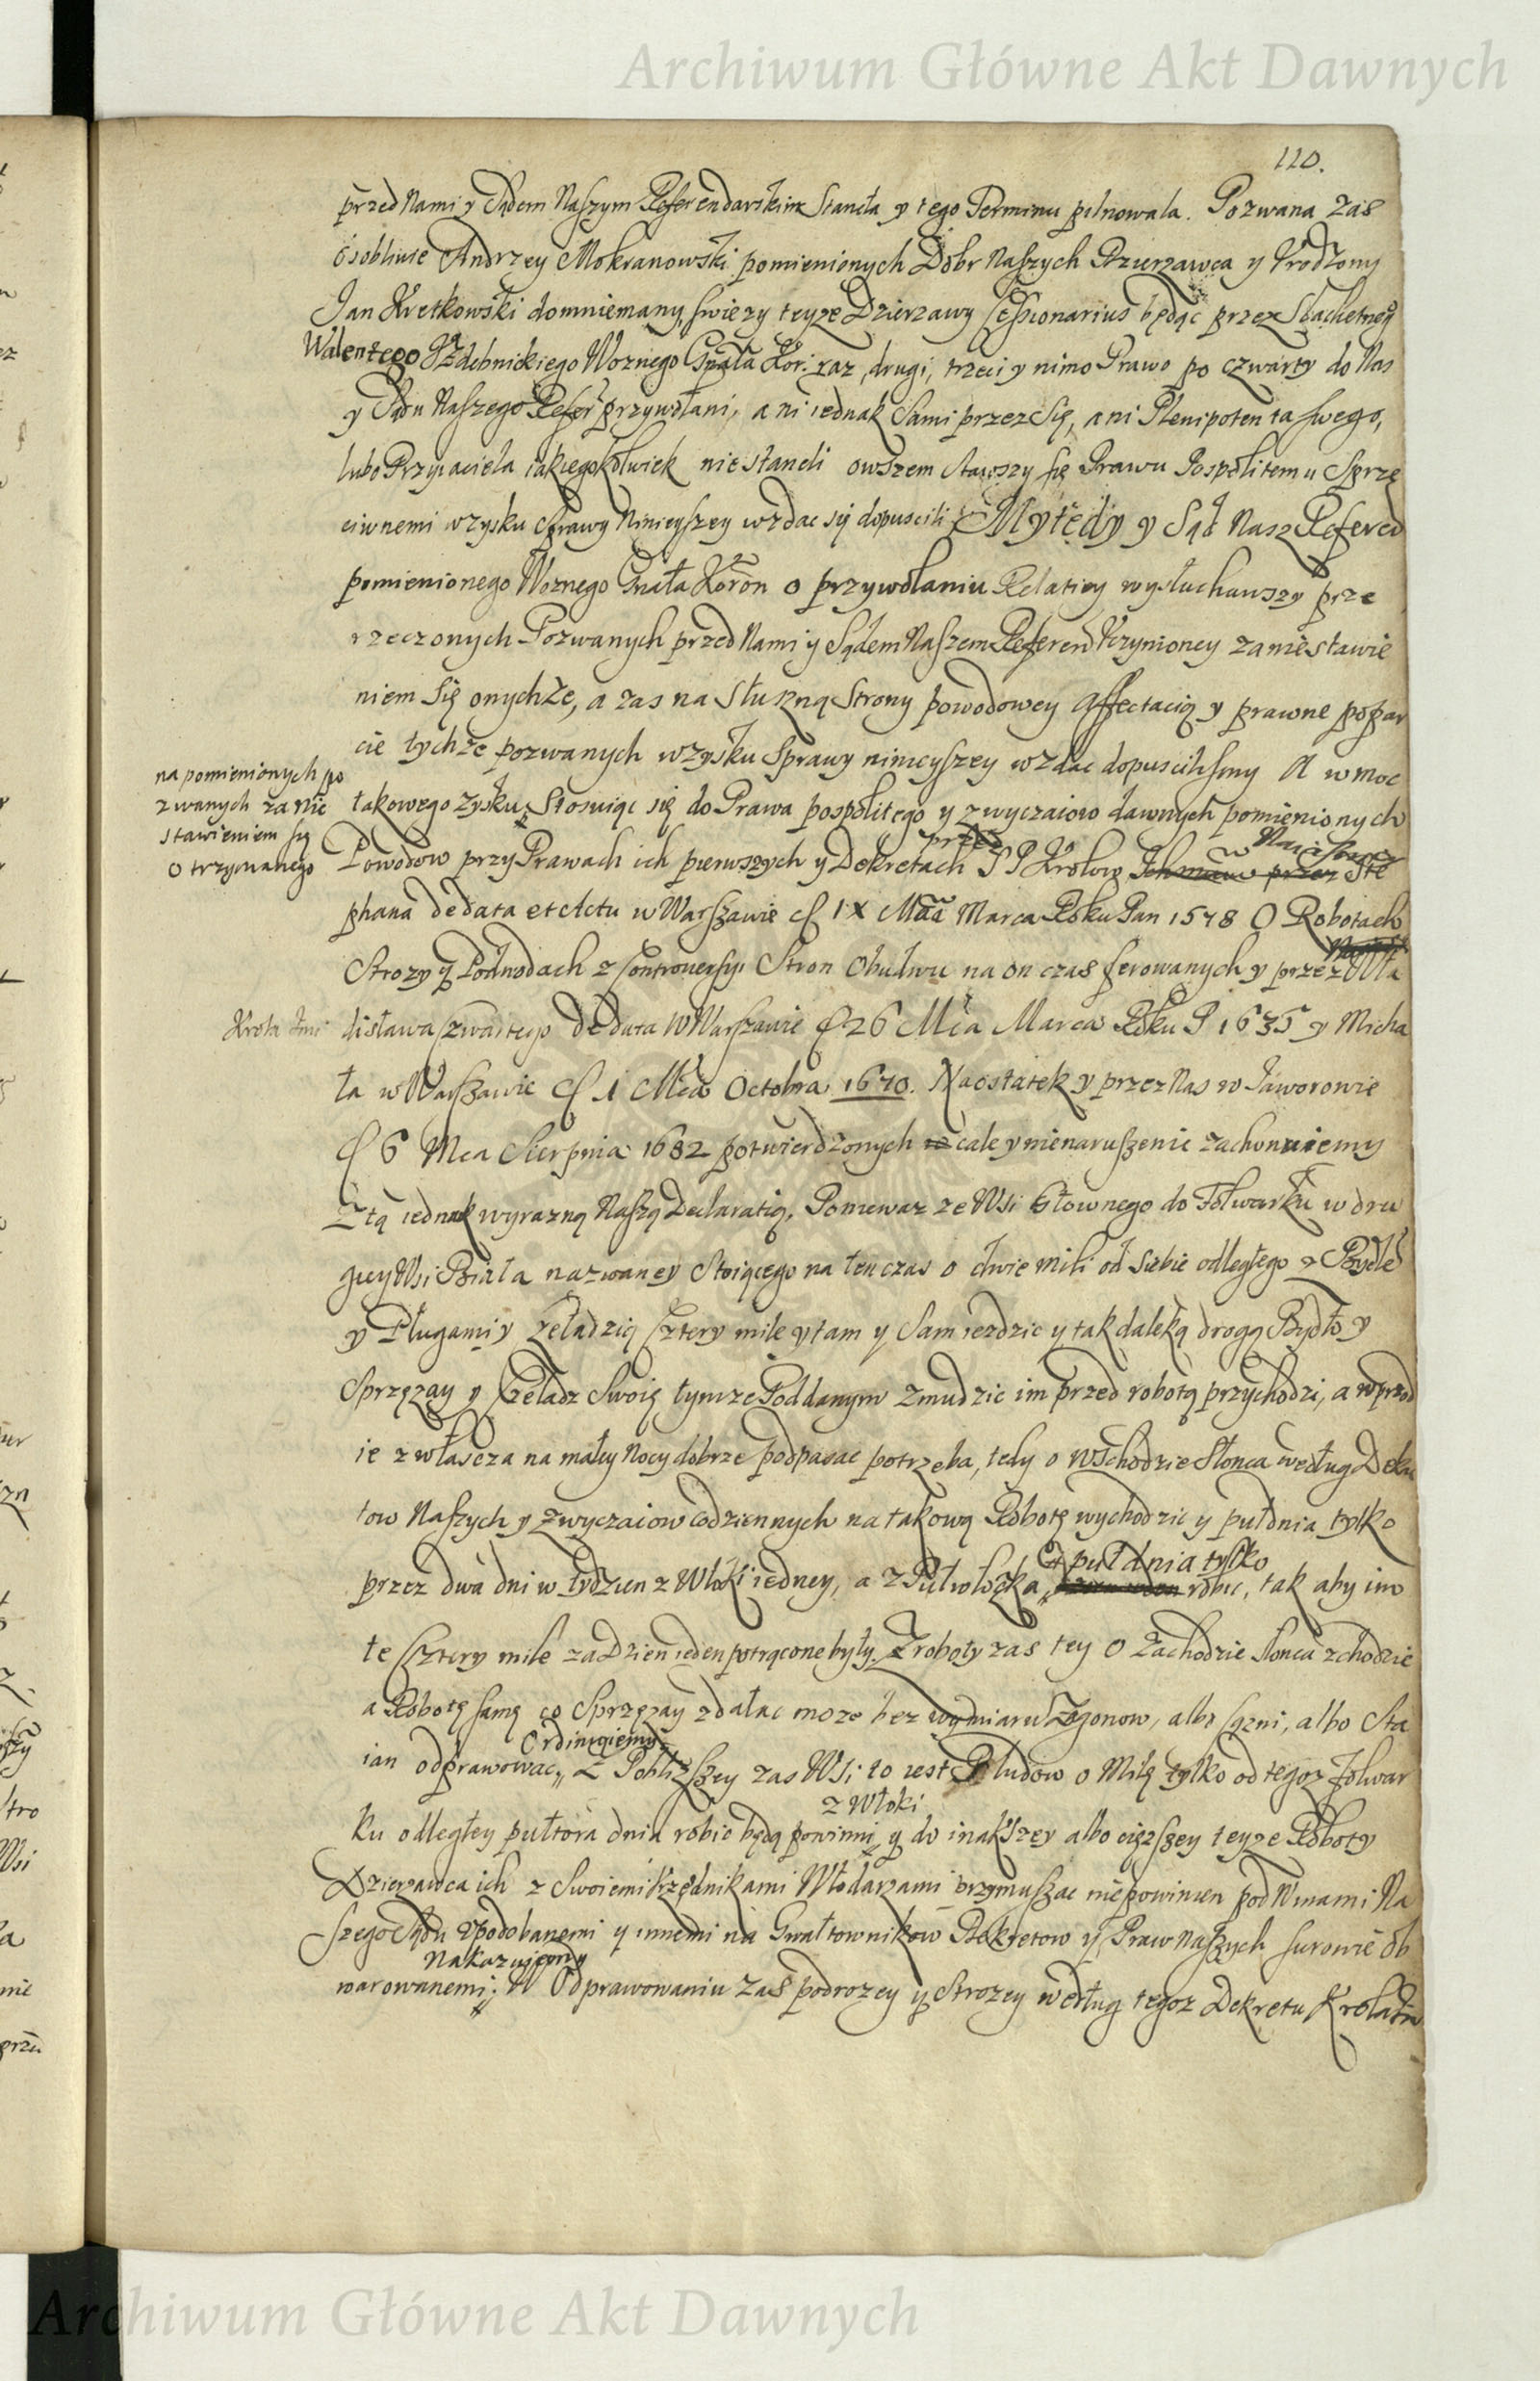 Archiwum Główne Akt Dawnych
110.
przed Nami y Sądem Naszym Referendarskim Staneła y tego Terminu pilnowala. Pozwana zas
osobliwie Andrzey Mokranowski pomienionych Dobr Naszych Dzierzawca y Vrodzony
Jan Kretkowski domniemany, swiezy teyze Dzierzawy Cessionarius będąc przez Slachetneg
Walentego Gzdebnickiego Woznego Gnała Kor: raz, drugi, trzeci y nimo Prawo po czwarty do Nas
y Sądu Naszego Refer przywołani, ani iednak Sami przez Się, ani Plenipotenta swego,
lubo Przyiaciela iakiegokolwiek nie staneli owszem stawszy się Prawu Pospolitemu Sprze
ciwnemi wzysku Sprawy Ninieyszey wzdac się dopuscili My tedy y Sąd Nasz Referend
pomienionego Woznego Gnała Koron o przywołaniu Relatiey wysłuchawszy prze
rzeczonych Pozwanych przed Nami y Sądem Naszem Referen Vczynioney za niestawie
niem Się onychże, a zas na Słuszną Strony powodowey affectacią y prawne popar
cie tychże pozwanych wzysku Sprawy ninieyszey wzdac dopuscilismy A w moc
na pomienionych po
zwanych za nie
stawieniem się
otrzymanego
takowego zysku Stosuiąc się do Prawa pospolitego y zwyczaiow dawnych pomienionych
przed w Naiasnieysz
Powodow przy Prawach ich pierwszych y Dekretach SP Krolow przez Ste
phana de data et Actu w Warszawie d IX Mca Marca Roku Pan 1578 O Robotach
Strozy y Podwodach z Controversyi Stron Obudwu na on czas ferowanych y przez Wła
Krola Jmci
disława czwartego de data w Warszawie d 26 Mca Marca Roku P 1635 y Micha
ła w Warszawie d 1 Mca Octobra 1670. Naostatek y przez Nas w Jaworowie
d 6 Mca Sierpnia 1682 potwierdzonych cale y nienaruszenie zachowuiemy
Z tą iednak wyrazną Naszą Declaratią, Poniewaz ze Wsi Głownego do Folwarku w dru
giey Wsi Biała nazwaney Stoiącego na ten czas o dwie mili od siebie odległego z Bydłe
y Pługami y czeladzią cztery mile y tam y Sam iezdzic y tak daleką drogą Bydło y
Sprzęzay y Czeladz Swoię tymze Poddanym zmudzic im przed robotą przychodzi, a wprzod
ie zwłascza na małey Nocy dobrze podpasac potrzeba, tedy o Wschodzie Słonca według Dekre
tow Naszych y zwyczaiow codziennych na takową Robotę wychodzic y pułdnia tylko
pułdnia tylko
przez dwa dni w tydzien z Włoki iedney, a z Pułwłoczka robic, tak aby im
te cztery mile za dzien ieden potrącone były. Z roboty zas tey o Zachodzie słonca zchodzic
a Robotę samę co Sprzęzay zdałac moze bez wymiaru Zagonow, albo sązni, albo Sta
Ordinuiemy
ian odprawowac, Z Poblizszey zas Wsi to iest Pludow o Milę tylko od tegoz folwar
z Włoki
ku odległey pułtora dnia robic będą powinni y do inakszey albo cięzszey teyze Roboty
Dzierzawca ich z Swoiemi Vrzędnikami Włodarzami przymuszac nie powinien pod Winami Na
szego Sądu Vpodobanemi y innemi na Gwałtownikow Dekretow y Praw Naszych surowie ob
Nakazuiemy
warowanemi; W Odprawowaniu zas podrozey y Strozey według tegoz Dekretu Krola Jm
Archiwum Główne Akt Dawnych